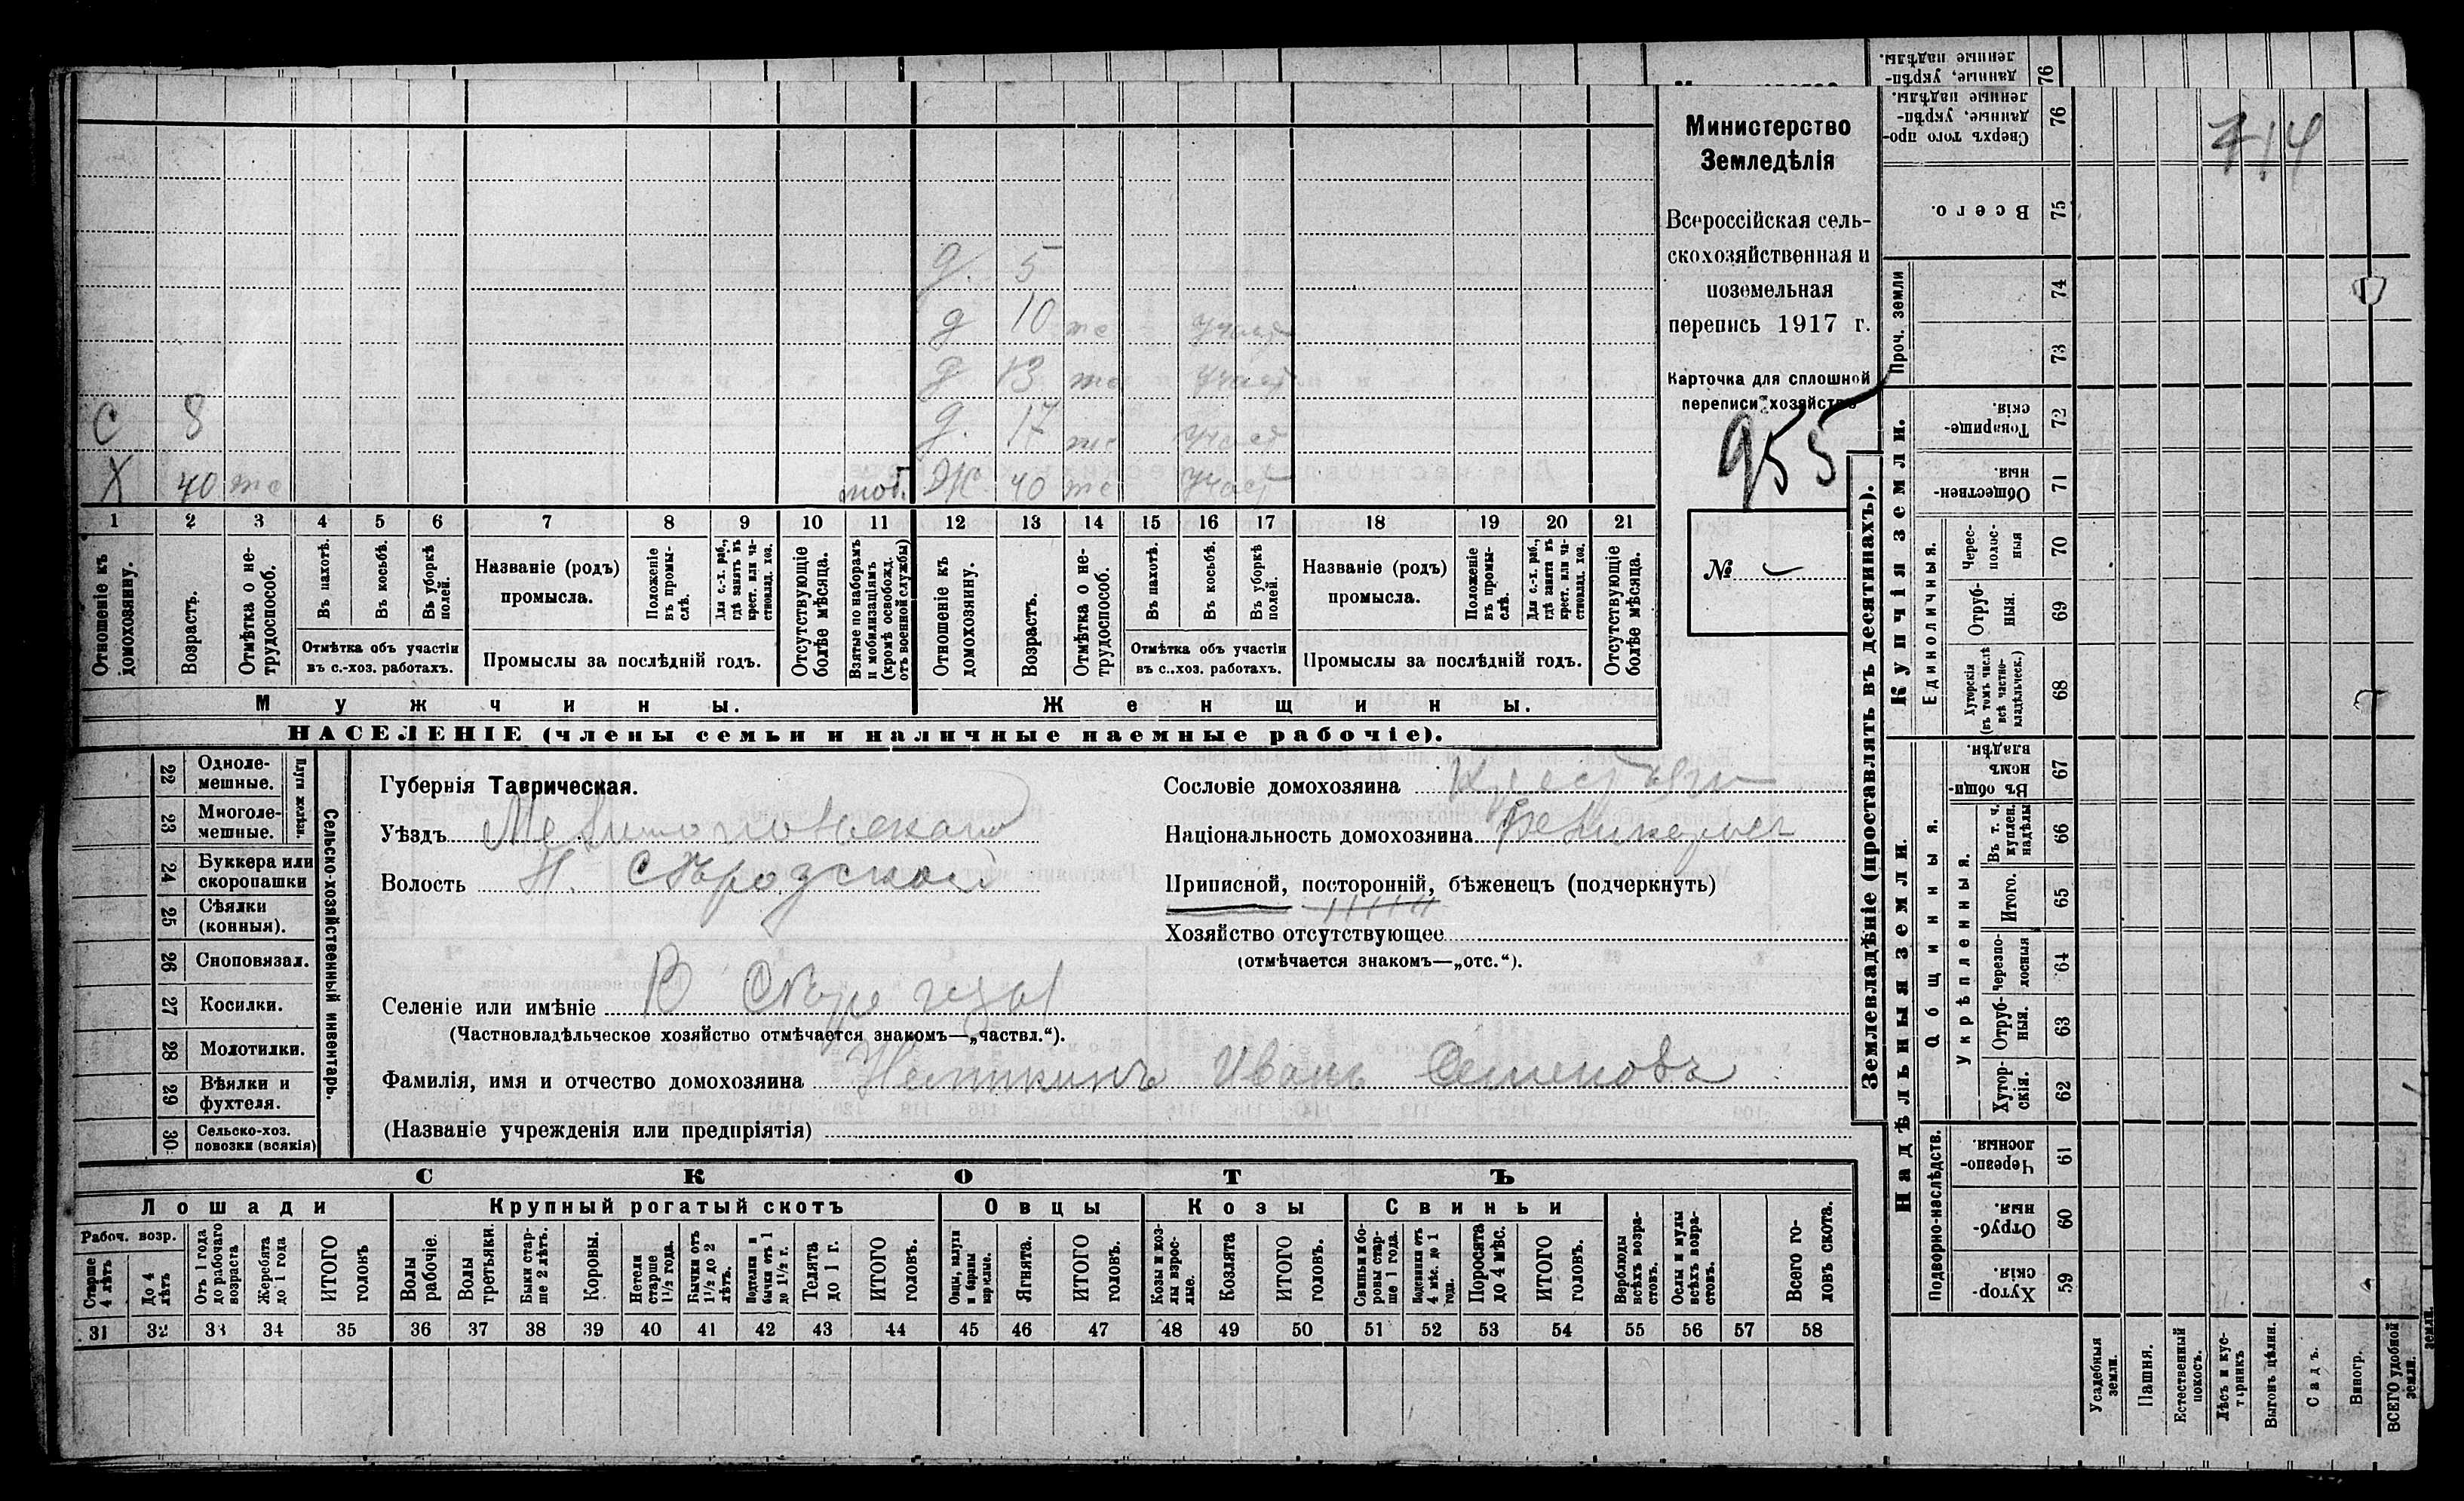 714
Министерство
Земледѣлія
Всероссійская сель-
скохозяйственная и
поземельная
перепись 1917 г.
Карточка для сплошной
переписи хозяйствъ
955
№
д. 5
д 10 тс участ
д 13 тс участ
С 8 д. 17 тс участ
Х 40 тс моб. Ж 40 тс участ
1 2 3 4 5 6 7 8 9 10 11 12 13 14 15 16 17 18 19 20 21
Отношеніе къ домохозяину.
Возрастъ.
Отмѣтка о не-
трудоспособ.
Въ пахотѣ.
Въ косьбѣ.
Въ уборкѣ полей.
Отмѣтка объ участіи
въ с.-хоз. работахъ.
Названіе (родъ)
промысла.
Положеніе
въ промы-
слѣ.
Для с.-х. раб.,
гдѣ занятъ въ
крест. или ча-
стновлад. хоз.
Промыслы за послѣдній годъ.
Отсутствующіе
болѣе мѣсяца.
Взятые по наборамъ
и мобилизаціямъ
(кромѣ освобожд.
отъ военной службы)
Отношеніе къ
домохозяину.
Возрастъ.
Отмѣтка о не-
трудоспособ.
Въ пахотѣ.
Въ косьбѣ.
Въ уборкѣ
полей.
Отмѣтка объ участіи
въ с.-хоз. работахъ.
Названіе (родъ)
промысла.
Положеніе
въ промы-
слѣ.
Для с.-х. раб.,
гдѣ занята въ
крест. или ча-
стновлад. хоз.
Промыслы за послѣдній годъ.
Отсутствующіе
болѣе мѣсяца.
Мужчины.
Женщины.
НАСЕЛЕНІЕ (члены семьи и наличные наемные рабочіе).
Сельско-хозяйственный инвентарь.
Плуги желѣзн.
22 Одноле-
мешные.
23 Многоле-
мешные.
24 Буккера или
скоропашки
25 Сѣялки
(конныя).
26 Сноповязал.
27 Косилки.
28 Молотилки.
29 Вѣялки и
фухтеля.
30 Сельско-хоз.
повозки (всякія)
Губернія Таврическая.
Уѣздъ Мелитопольскаго
Волость Н. Сѣрогозской
Сословіе домохозяина Крестьян
Національность домохозяина Великорос
Приписной, посторонній, бѣженецъ (подчеркнуть)
Хозяйство отсутствующее
(отмѣчается знакомъ—„отс.“).
Селеніе или имѣніе В Сѣрогозы
(Частновладѣльческое хозяйство отмѣчается знакомъ—„частвл.“).
Фамилія, имя и отчество домохозяина Иванъ Семеновъ
(Названіе учрежденія или предпріятія)
СКОТЪ
Лошади
Крупный рогатый скотъ
Овцы
Козы
Свиньи
Рабоч. возр.
Старше
4 лѣтъ
До 4
лѣтъ
Отъ 1 года
до рабочаго
возраста
Жеребята
до 1 года
ИТОГО
головъ
Волы
рабочіе.
Волы
третьяки.
Быки стар-
ше 2 лѣтъ.
Коровы.
Нетели
старше
1½ года.
Бычки отъ
1½ до 2
лѣтъ.
Подтелки и
бычки отъ 1
до 1½ г.
Телята
до 1 г.
ИТОГО
головъ.
Овцы, валухи
и бараны
взрослые.
Ягнята.
ИТОГО
головъ.
Козы и коз-
лы взрос-
лые.
Козлята
ИТОГО
головъ.
Свиньи и бо-
ровы стар-
ше 1 года.
Подсвинки отъ
4 мѣс. до 1
года.
Поросята
до 4 мѣс.
ИТОГО
головъ.
Верблюды
всѣхъ возра-
стовъ.
Ослы и мулы
всѣхъ возра-
стовъ.
Всего го-
ловъ скота.
31 32 33 34 35 36 37 38 39 40 41 42 43 44 45 46 47 48 49 50 51 52 53 54 55 56 57 58
Землевладѣніе (проставлять въ десятинахъ).
Надѣльныя земли.
Купчія земли.
Проч. земли
Подворно-наслѣдств.
Общинныя.
Укрѣпленныя.
Единоличныя.
59 Хутор-
скія.
60 Отруб-
ныя.
61 Черезпо-
лосныя
62 Хутор-
скія.
63 Отруб-
ныя.
64 Черезпо-
лосныя
65 Итого.
66 Въ т. ч.
куплен.
надѣлы
67 Въ общи-
номъ
владѣн.
68 Хуторскія
(въ томъ числѣ
всѣ частно-
владѣльческ.)
69 Отруб-
ныя.
70 Черес-
полос-
ныя
71 Обществен-
ныя
72 Товарище-
скія.
73
74
75 Всего.
76 Сверхъ того про-
данные, укрѣп-
ленные надѣлы.
76
данные, укрѣп-
ленные надѣлы.
Усадебныя
земли.
Пашня.
Естественный
покосъ.
Лѣсъ и кус-
тарникъ
Выгонъ цѣлин.
Садъ.
Виногр.
ВСЕГО удобной
земли.
земли.